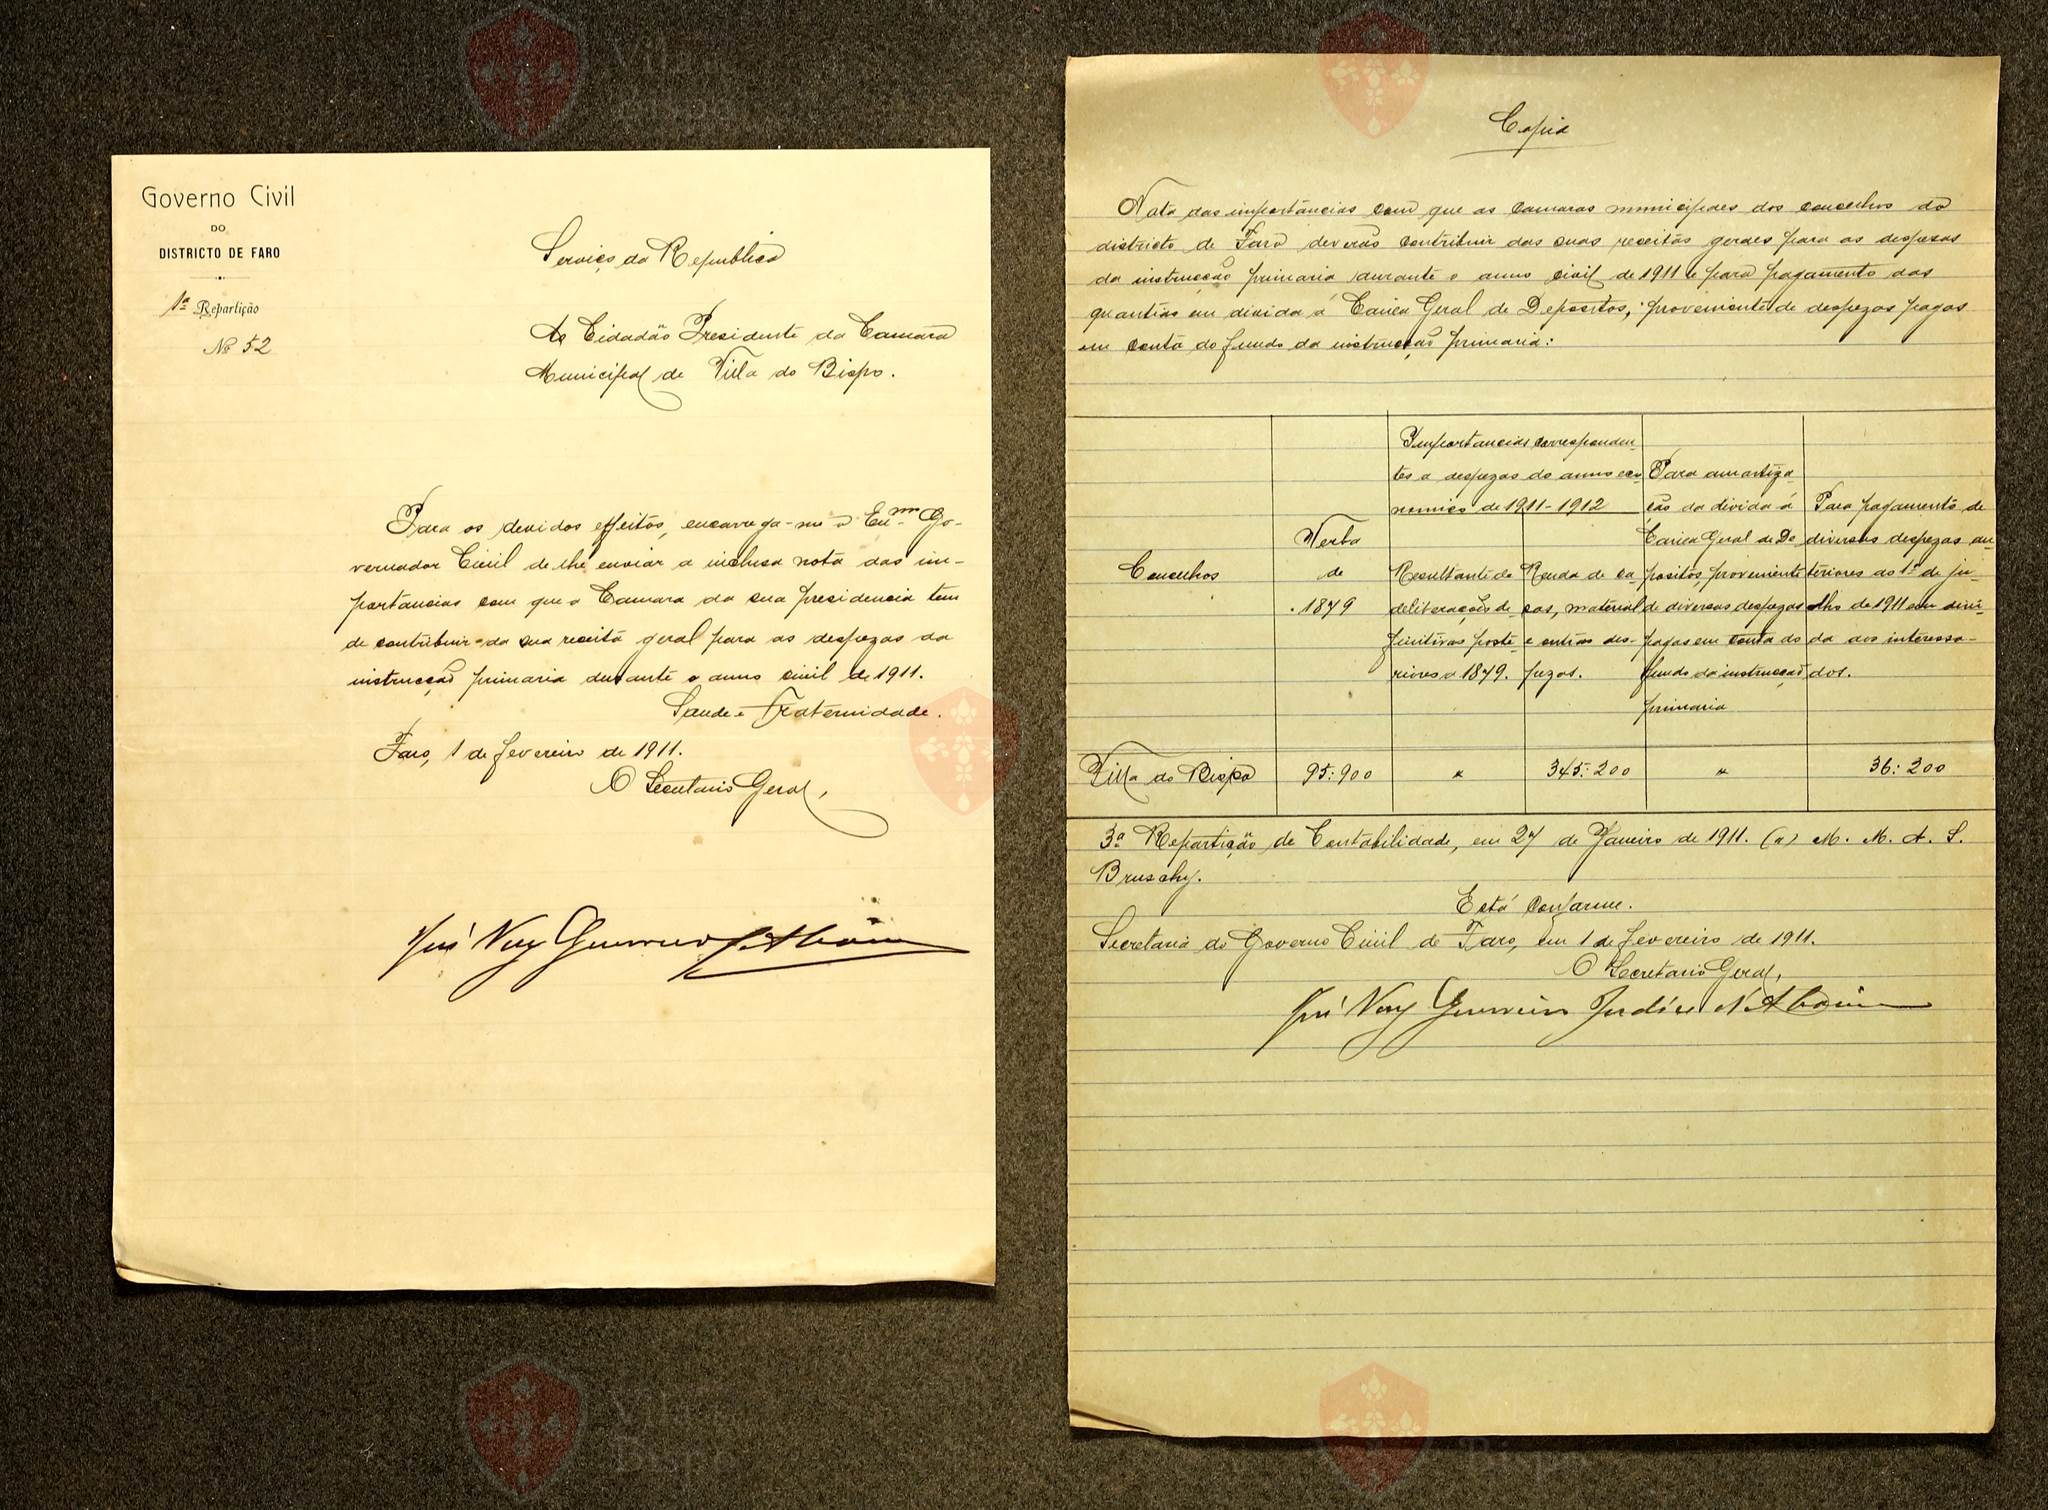 Governo Civil
DO
DISTRICTO DE FARO
1ª Repartição
Nº 52
Serviço da Republica
Ao Cidadão Presidente da Camara
Municipal de Villa do Bispo.
Para os devidos effeitos, encarrega-me o Exmº Go-
vernador Civil de lhe enviar a inclusa nota das im-
portancias com que a Camara da sua presidencia tem
de contribuir da sua receita geral para as despezas da
instrucção primaria durante o anno civil de 1911.
Saude e Fraternidade.
Faro, 1 de fevereiro de 1911.
O Secretario Geral,
José Guerreiro
Copia
Nota das importancias com que as camaras municipaes dos concelhos do
districto de Faro deverão contribuir das suas receitas geraes para as despezas
da instrucção primaria durante o anno civil de 1911 e para pagamento das
quantias em divida á Caixa Geral de Depositos, proveniente de despezas pagas
em conta do fundo da instrucção primaria:
Concelhos
Verba
de
1879
Importancias corresponden-
tes a despezas do anno eco-
nomico de 1911-1912
Resultante de
deliberações de-
finitivas poste-
riores a 1879.
Renda de ca-
sas, material
e outras des-
pezas.
Para amortiza-
ção da divida á
Caixa Geral de De
positos, proveniente
de diversas despezas
pagas em conta do
fundo da instrucção
primaria
Para pagamento de
diversas despezas an-
teriores ao 1º de ju-
lho de 1911 em divi-
da aos interessa-
dos.
Villa do Bispo 95:900 " 345:200 " 36:200
3ª Repartição de Contabilidade, em 27 de Janeiro de 1911. (a) M. M. A. S.
Bruschy.
Está conforme.
Secretaria do Governo Civil de Faro, em 1 de fevereiro de 1911.
O Secretario Geral,
José Guerreiro Judice
Vila
Bispo
Vila
Bispo
Bispo